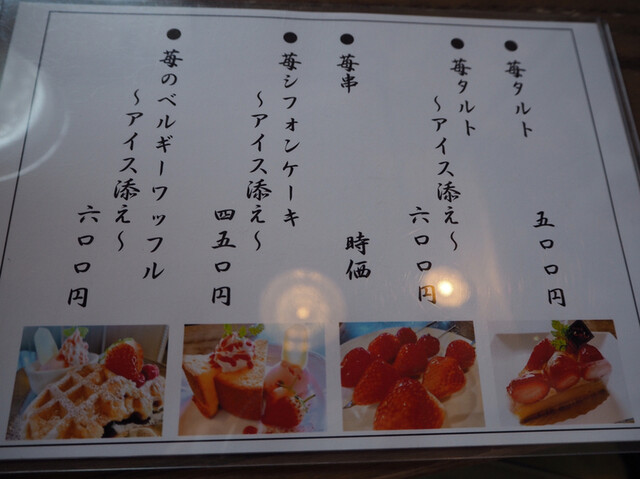 ●苺タルト
五〇〇円
●苺タルト
～アイス添え～
六〇〇円
●苺串
時価
●苺シフォンケーキ
～アイス添え～
四五〇円
●苺のベルギーワッフル
～アイス添え～
六〇〇円